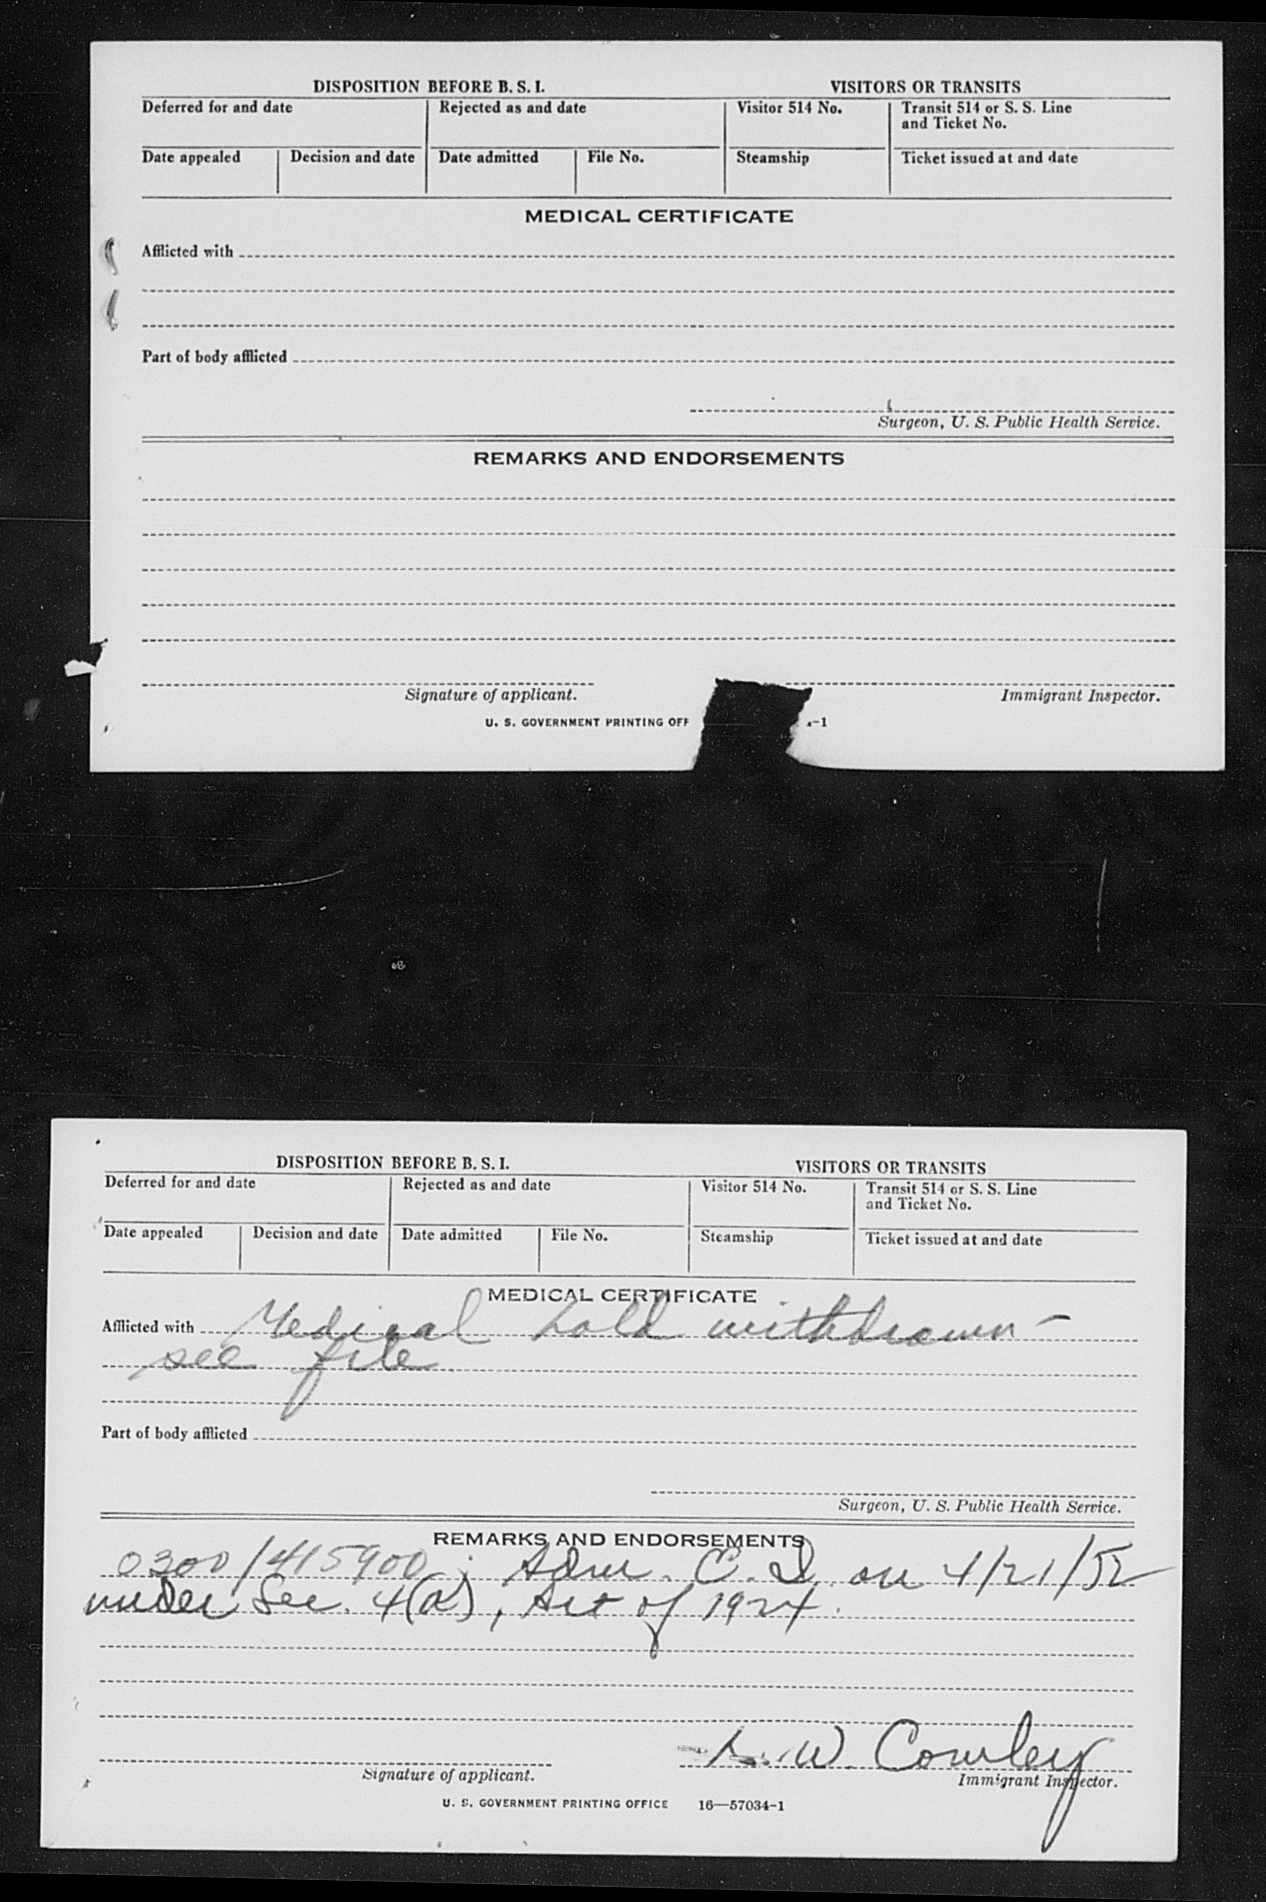 DISPOSITION BEFORE B. S. I. VISITORS OR TRANSITS
Deferred for and date Rejected as and date Visitor 514 No. Transit 514 or S. S. Line
and Ticket No.
Date appealed Decision and date Date admitted File No. Steamship Ticket issued at and date
MEDICAL CERTIFICATE
Afflicted with
Part of body afflicted
Surgeon, U. S. Public Health Service.
REMARKS AND ENDORSEMENTS
Signature of applicant. Immigrant Inspector.
U. S. GOVERNMENT PRINTING OFF -1
DISPOSITION BEFORE B. S. I. VISITORS OR TRANSITS
Deferred for and date Rejected as and date Visitor 514 No. Transit 514 or S. S. Line
and Ticket No.
Date appealed Decision and date Date admitted File No. Steamship Ticket issued at and date
MEDICAL CERTIFICATE
Afflicted with Medical hold withdrawn -
see file
Part of body afflicted
Surgeon, U. S. Public Health Service.
REMARKS AND ENDORSEMENTS
0300/415900: Adm. C. I. on 4/21/52
under Sec. 4(a), Act of 1924.
W. Cowley
Signature of applicant. Immigrant Inspector.
U. S. GOVERNMENT PRINTING OFFICE 16—57034-1